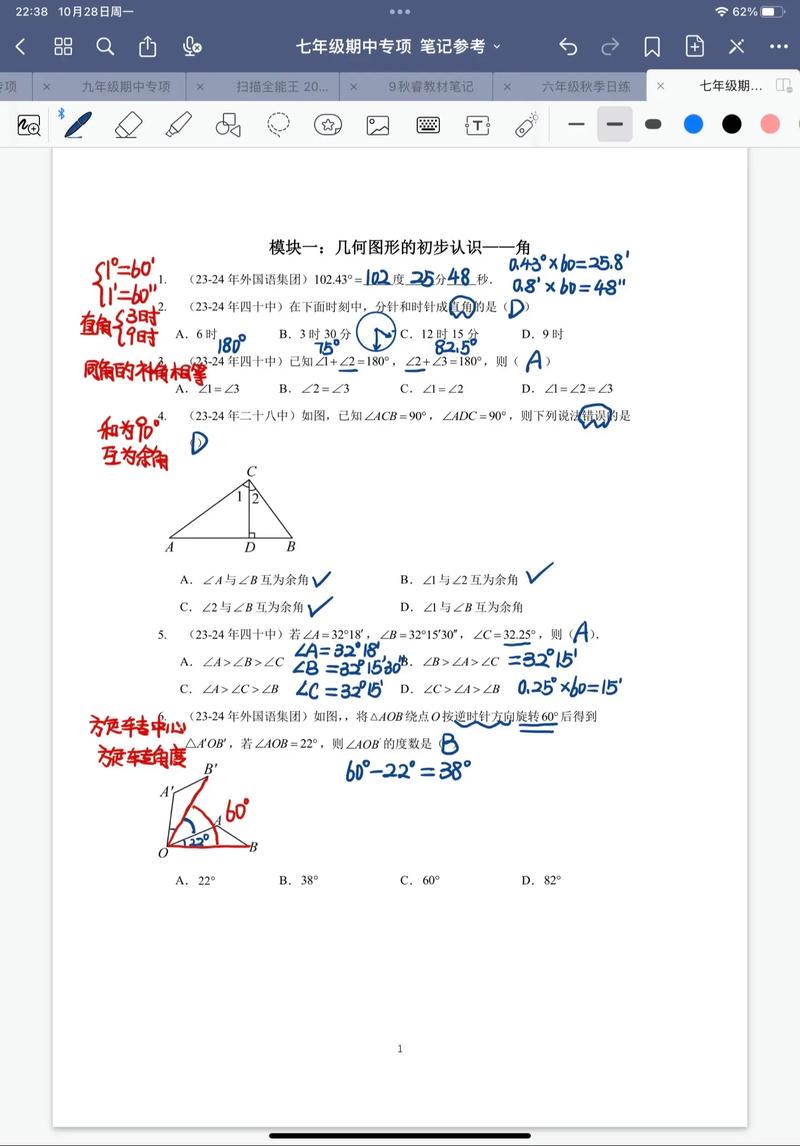 22:38 10月28日周一
62%
七年级期中专项 笔记参考
专项
九年级期中专项
扫描全能王 20...
9秋睿教材笔记
六年级秋季日练
七年级期...
模块一：几何图形的初步认识——角
1°=60′
1′=60″
1. （23-24 年外国语集团）102.43°= 102 度 25 分 48 秒．
0.43°×60=25.8′
0.8′×60=48″
2. （23-24 年四十中）在下面时刻中，分针和时针成直角的是（ D ）
直角 3时
9时
A．6 时 B．3 时 30 分 C．12 时 15 分 D．9 时
180° 75° 82.5°
3. （23-24 年四十中）已知∠1+∠2=180°，∠2+∠3=180°，则（ A ）
同角的补角相等
A．∠1=∠3 B．∠2=∠3 C．∠1=∠2 D．∠1=∠2=∠3
4. （23-24 年二十八中）如图，已知∠ACB=90°，∠ADC=90°，则下列说法错误的是
D
和为90°
互为余角
C
1 2
A D B
A．∠A与∠B互为余角 ✓ B．∠1与∠2互为余角 ✓
C．∠2与∠B互为余角 ✓ D．∠1与∠B互为余角
5. （23-24 年四十中）若∠A=32°18′，∠B=32°15′30″，∠C=32.25°，则（ A ）．
A．∠A>∠B>∠C B．∠B>∠A>∠C
∠A=32°18′
∠B=32°15′30″
=32°15′
C．∠A>∠C>∠B D．∠C>∠A>∠B
∠C=32°15′
0.25°×60=15′
6. （23-24 年外国语集团）如图,，将△AOB绕点O按逆时针方向旋转60°后得到
△A′OB′，若∠AOB=22°，则∠AOB′的度数是（ B
旋转中心
旋转角度
60°−22°=38°
B′
A′
60°
A
22°
O B
A．22° B．38° C．60° D．82°
1